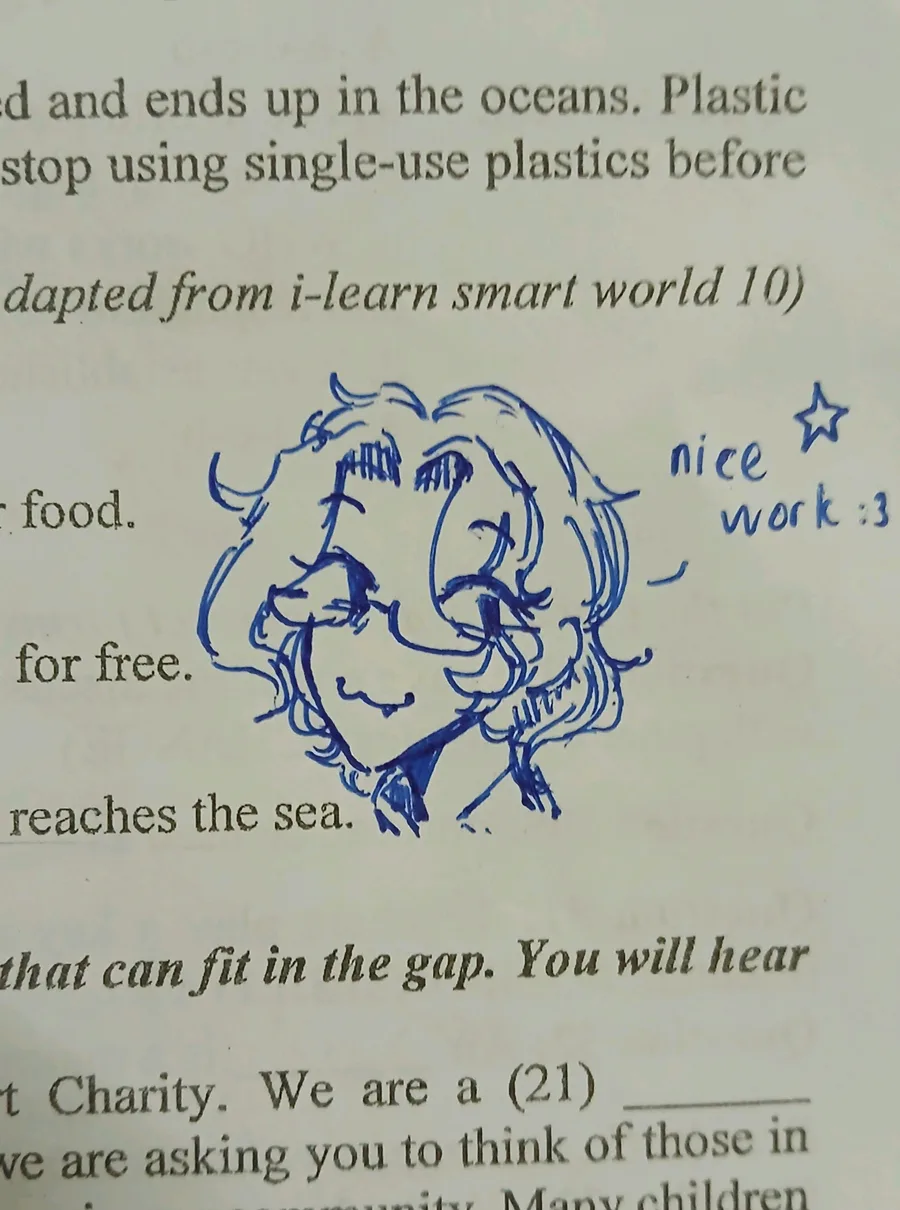 ed and ends up in the oceans. Plastic
stop using single-use plastics before
dapted from i-learn smart world 10)
nice
work :3
food.
for free.
reaches the sea.
that can fit in the gap. You will hear
t Charity. We are a (21) ________
we are asking you to think of those in
community. Many children